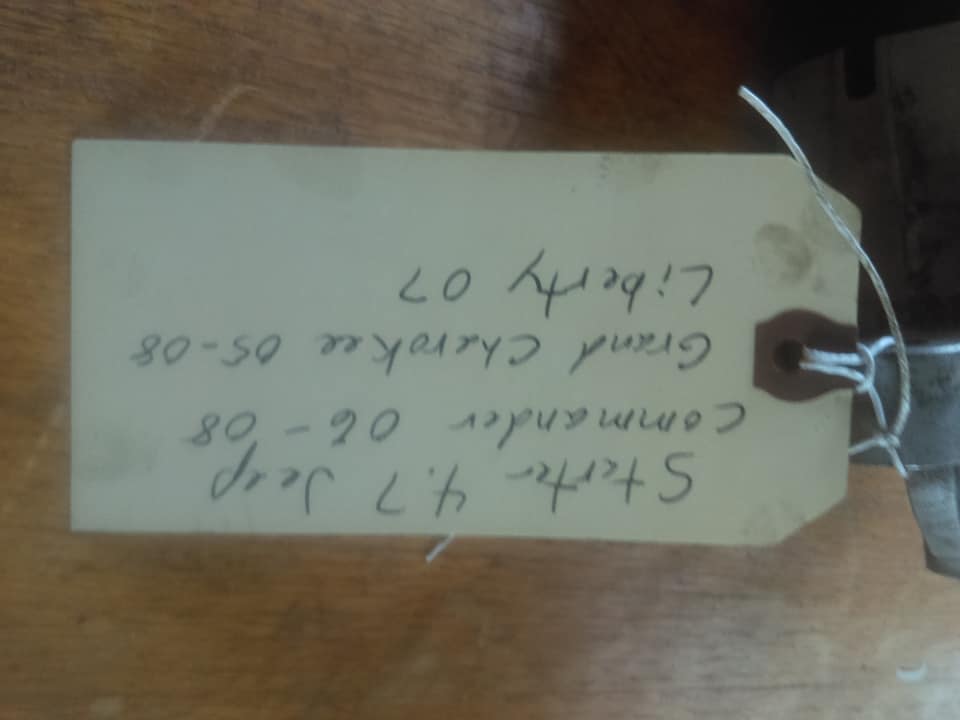 Starter 4.7 Jeep
Commander 06-08
Grand Cherokee 05-08
Liberty 07